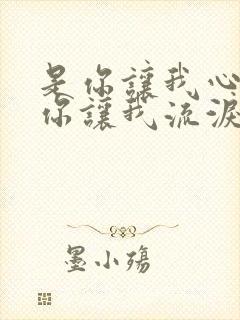 是你讓我心
你讓我流淚
墨小殤